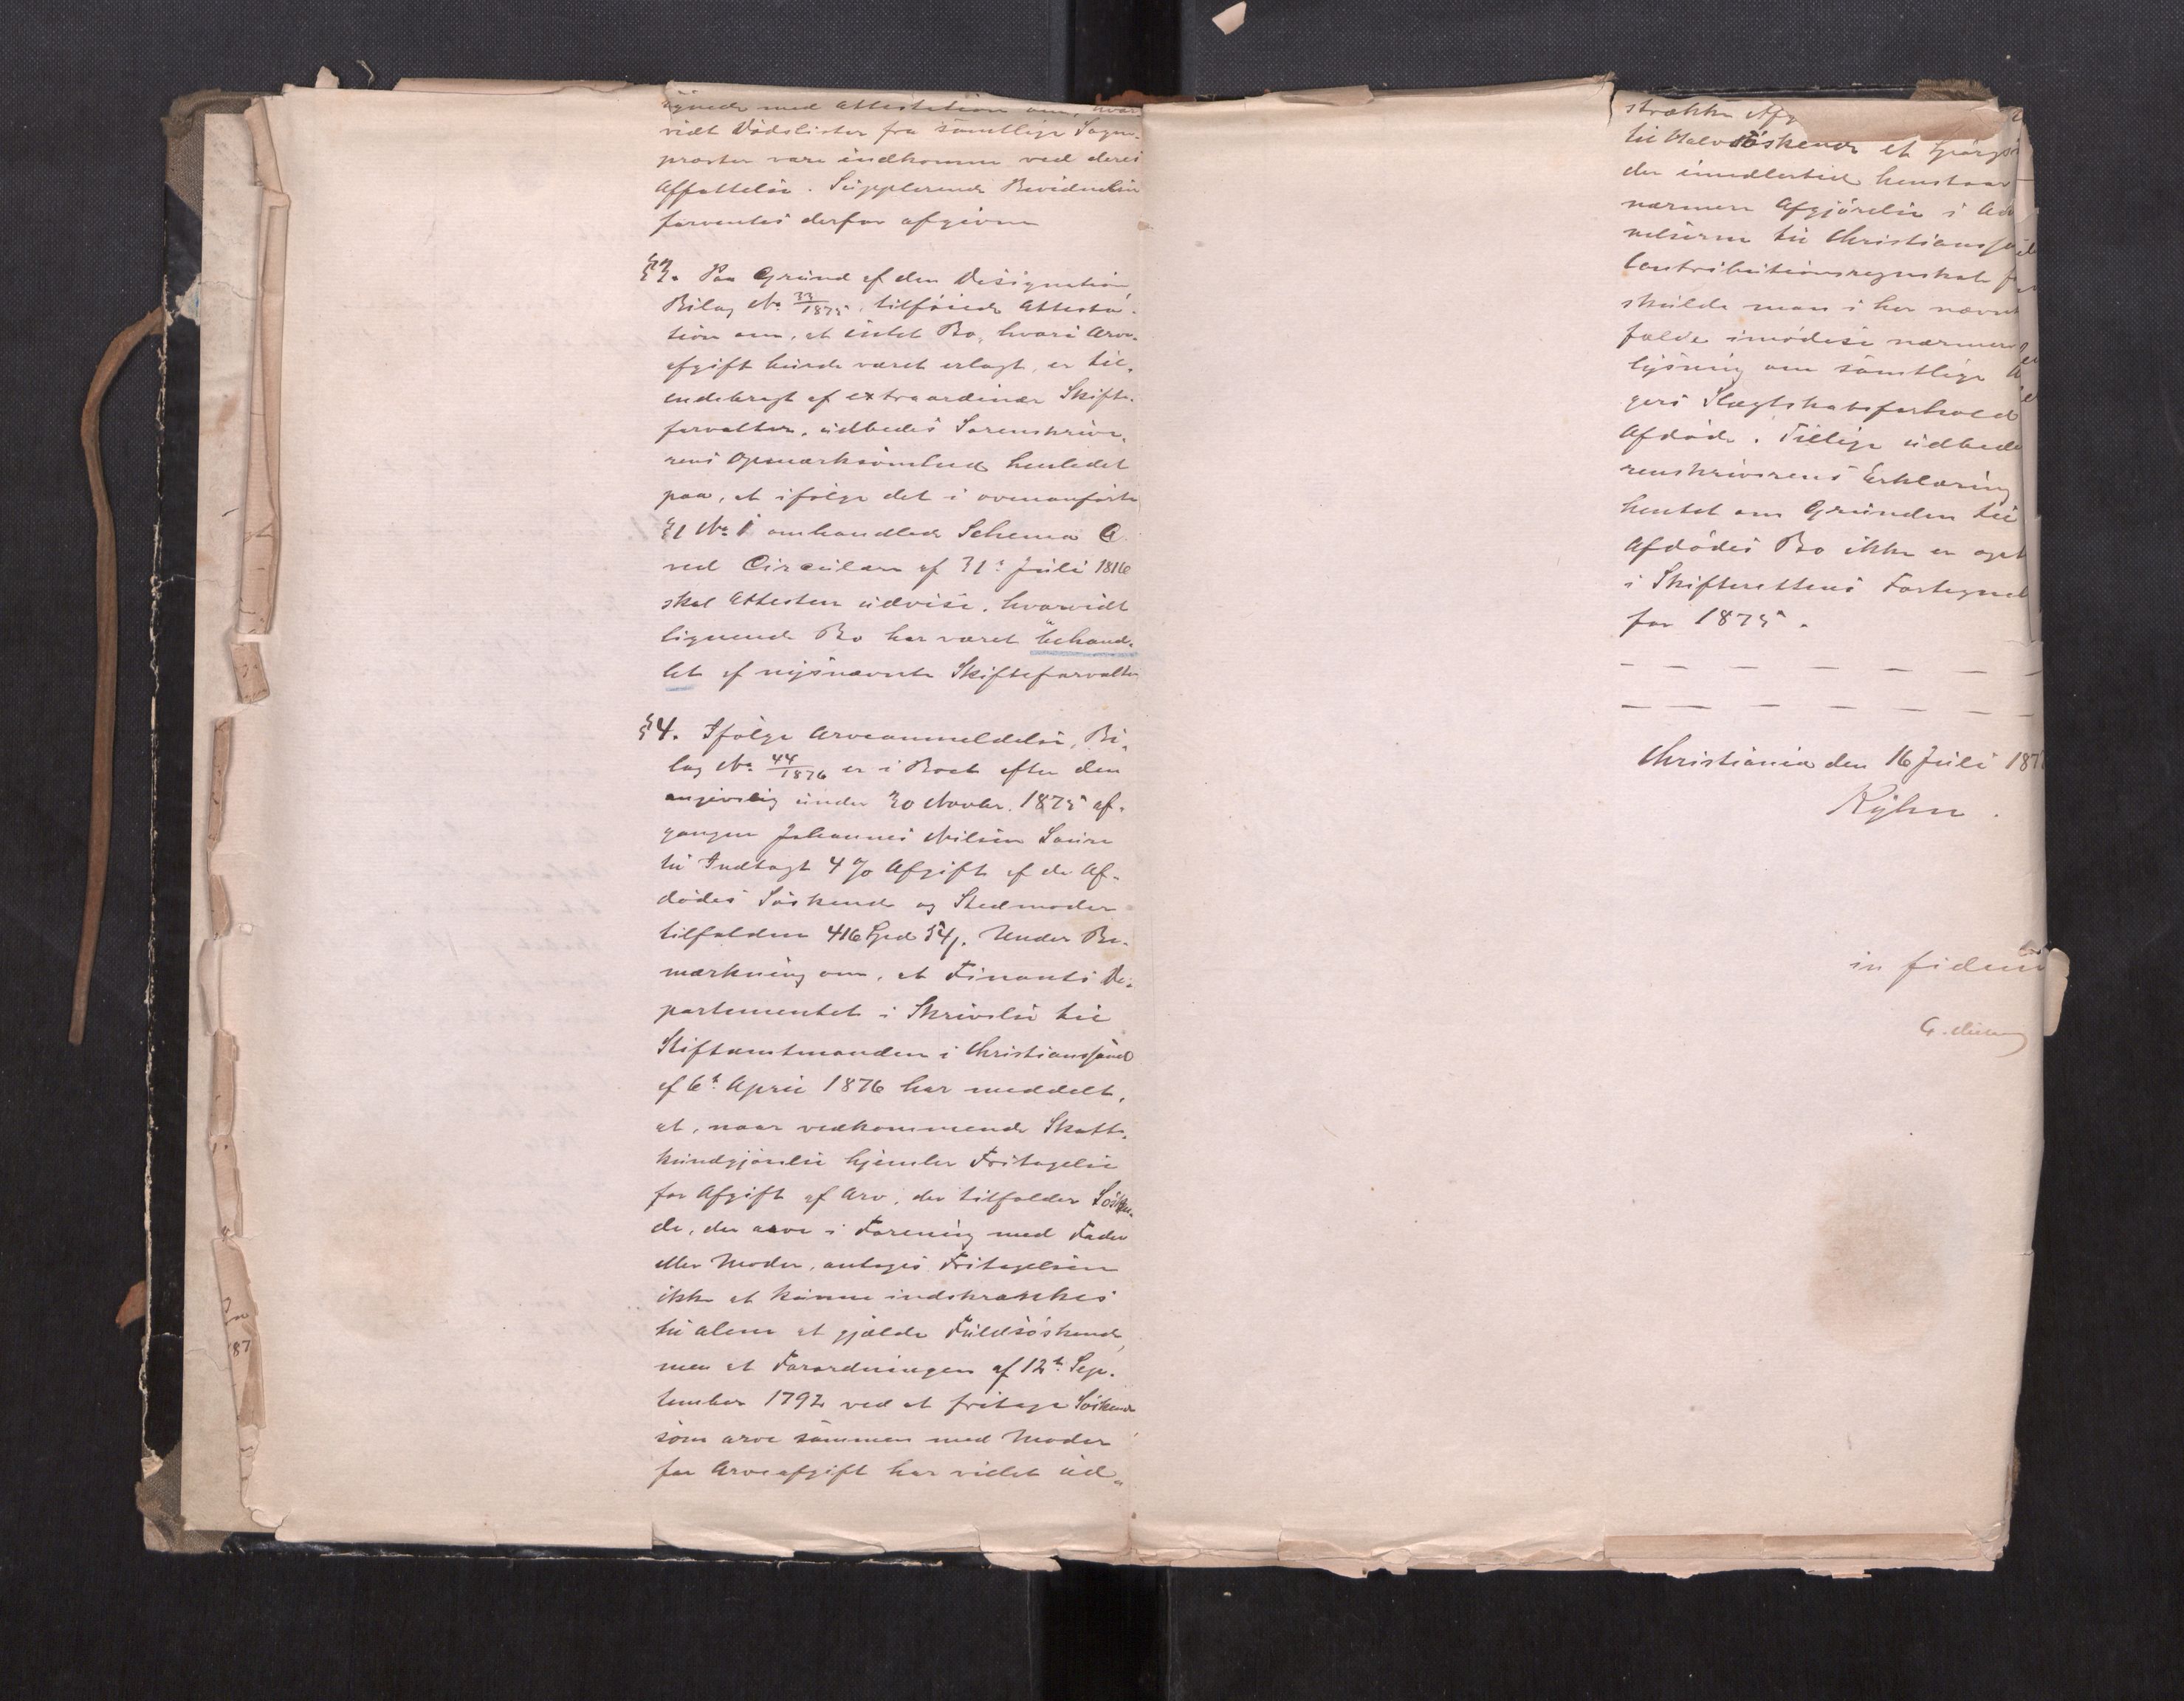 med Attestation om, hvor
vidt Dödslister fra samtlige Sogne-
præster vare indkomne ved deres
Affattelse. Supplerende Bevidnelse
forventes derfor afgiven
§3. Paa Grund af den Designation
Bilag No 33/1875, tilföiede Attesta-
tion om, at intet Bo, hvori Arve-
afgift burde været erlagt, er til-
endebragt af extraordinær Skifte-
forvalter, udbedes Sorenskrive-
rens Opmærksomhed henledet
paa, at ifölge det i ovenanförte
§1 No 1 omhandlede Schema
ved Circulære af 31t Juli 1816
skal Attesten udvise, hvorvidt
lignende Bo har været "behand-
let af nysnævnte Skifteforvalter
§4. Ifölge Arveanmeldelse, Bi-
lag No 44/1876 er i Boet efter den
angivelig under 30 Novbr. 1875 af-
gangne Johannes Nilsen
til Indtægt 4 % Afgift af de Af-
dödes Söskende og Stedmoder
tilfaldne 416 Spd 54 /. Under Be-
mærkning om, at Finants De-
partementet i Skrivelse til
Stiftamtmanden i Christianssand
af 6t April 1876 har meddelt,
at, naar vedkommende Skatte-
kundgjörelse hjemler Fritagelse
for Afgift af Arv, der tilfalderÖsken-
de, der arve i Forening med Fader
eller Moder, antages Fritagelsen
ikke at kunne indskrænkes
til alene at gjælde Fuldsöskende,
men at Forordningen af 12t Sep-
tember 1792 ved at fritage Söskende
som arve sammen med Moder
for Arveafgift har villet ud-
strække Afg
til Halvsöskende et Spörgs
der imidlertid henstaar
nærmere Afgjörelse i
nelserne til Christianss
Contributionsregnskab f
skulde man i her nævnt
fælde imödese nærmere
lysning om samtlige A
gers Slægtskabsforhold
Afdöde. Tillige udbede
renskriverens Erklæring
hentet om Grunden til
Afdödes Bo ikke er opt
i Skifterettens Fortegnel
for 1875.
Christiania den 16 Juli 187
Kyhn.
in fidem